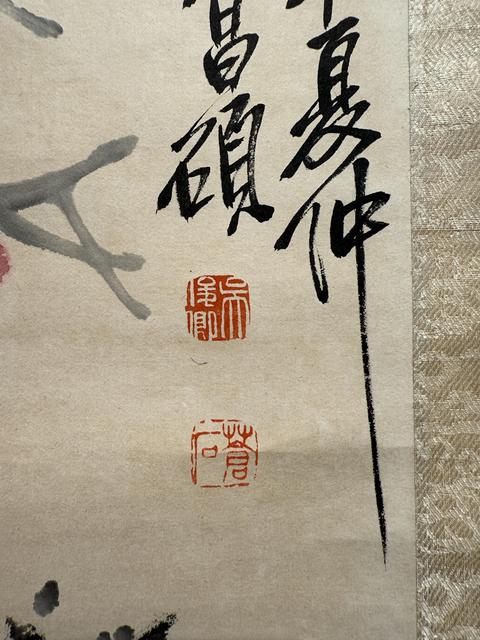 夏仲
昌碩
吳俊卿
蒼石